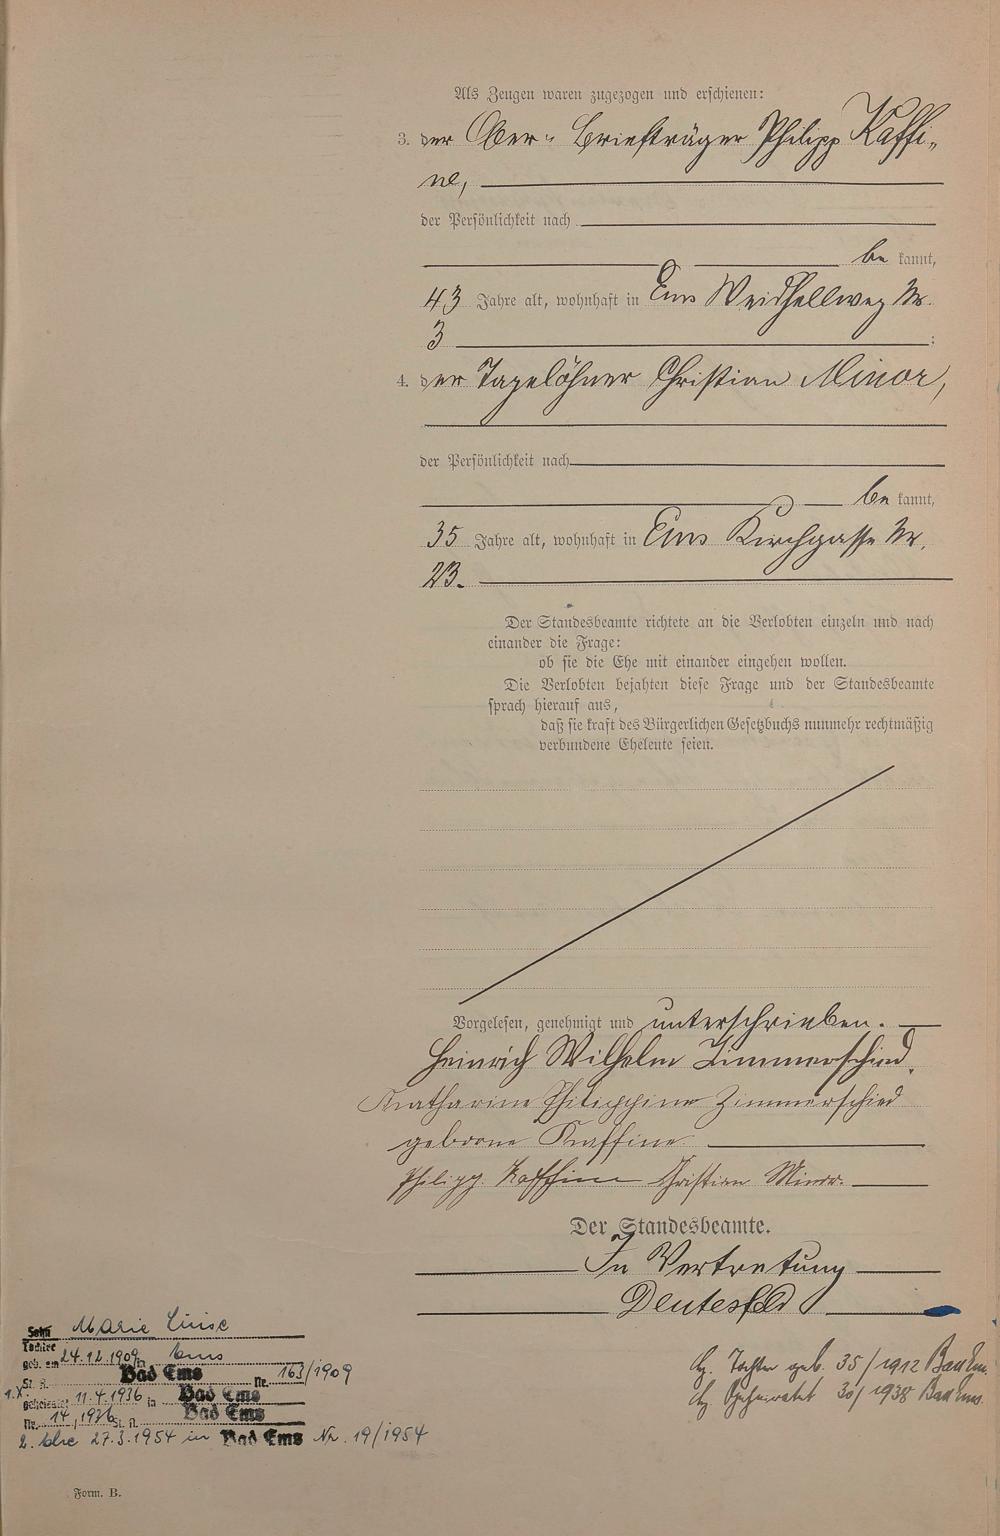 Als Zeugen waren zugezogen und erschienen:
3. der Ober-Briefträger Philipp Kaffi-
ne,
der Persönlichkeit nach
be kannt,
43 Jahre alt, wohnhaft in Ems Weidhellweg Nr.
3 ;
4. der Tagelöhner Christian Minor,
der Persönlichkeit nach
be kannt,
35 Jahre alt, wohnhaft in Ems Kirchgasse Nr.
23.
Der Standesbeamte richtete an die Verlobten einzeln und nach
einander die Frage:
ob sie die Ehe mit einander eingehen wollen.
Die Verlobten bejahten diese Frage und der Standesbeamte
sprach hierauf aus,
daß sie kraft des Bürgerlichen Gesetzbuchs nunmehr rechtmäßig
verbundene Eheleute seien.
Vorgelesen, genehmigt und unterschrieben.
Heinrich Wilhelm Zimmerschied.
Katharine Philippine Zimmerschied
geborne Kaffine
Philipp Kaffine Christian Minor.
Der Standesbeamte.
In Vertretung
Deutesfeld
Sohn Marie Luise
Tochter
geb. am 24.12.1909 in Ems
St. A. Bad Ems Nr. 163/1909
geheiratet 11.4.1936 in Bad Ems
Nr. 14/1936 St. A. Bad Ems
2. Ehe 27.3.1954 in Bad Ems Nr. 19/1954
Tochter geb. 35/1912 Bad Ems.
Geheiratet 30/1938 Bad Ems.
Form. B.